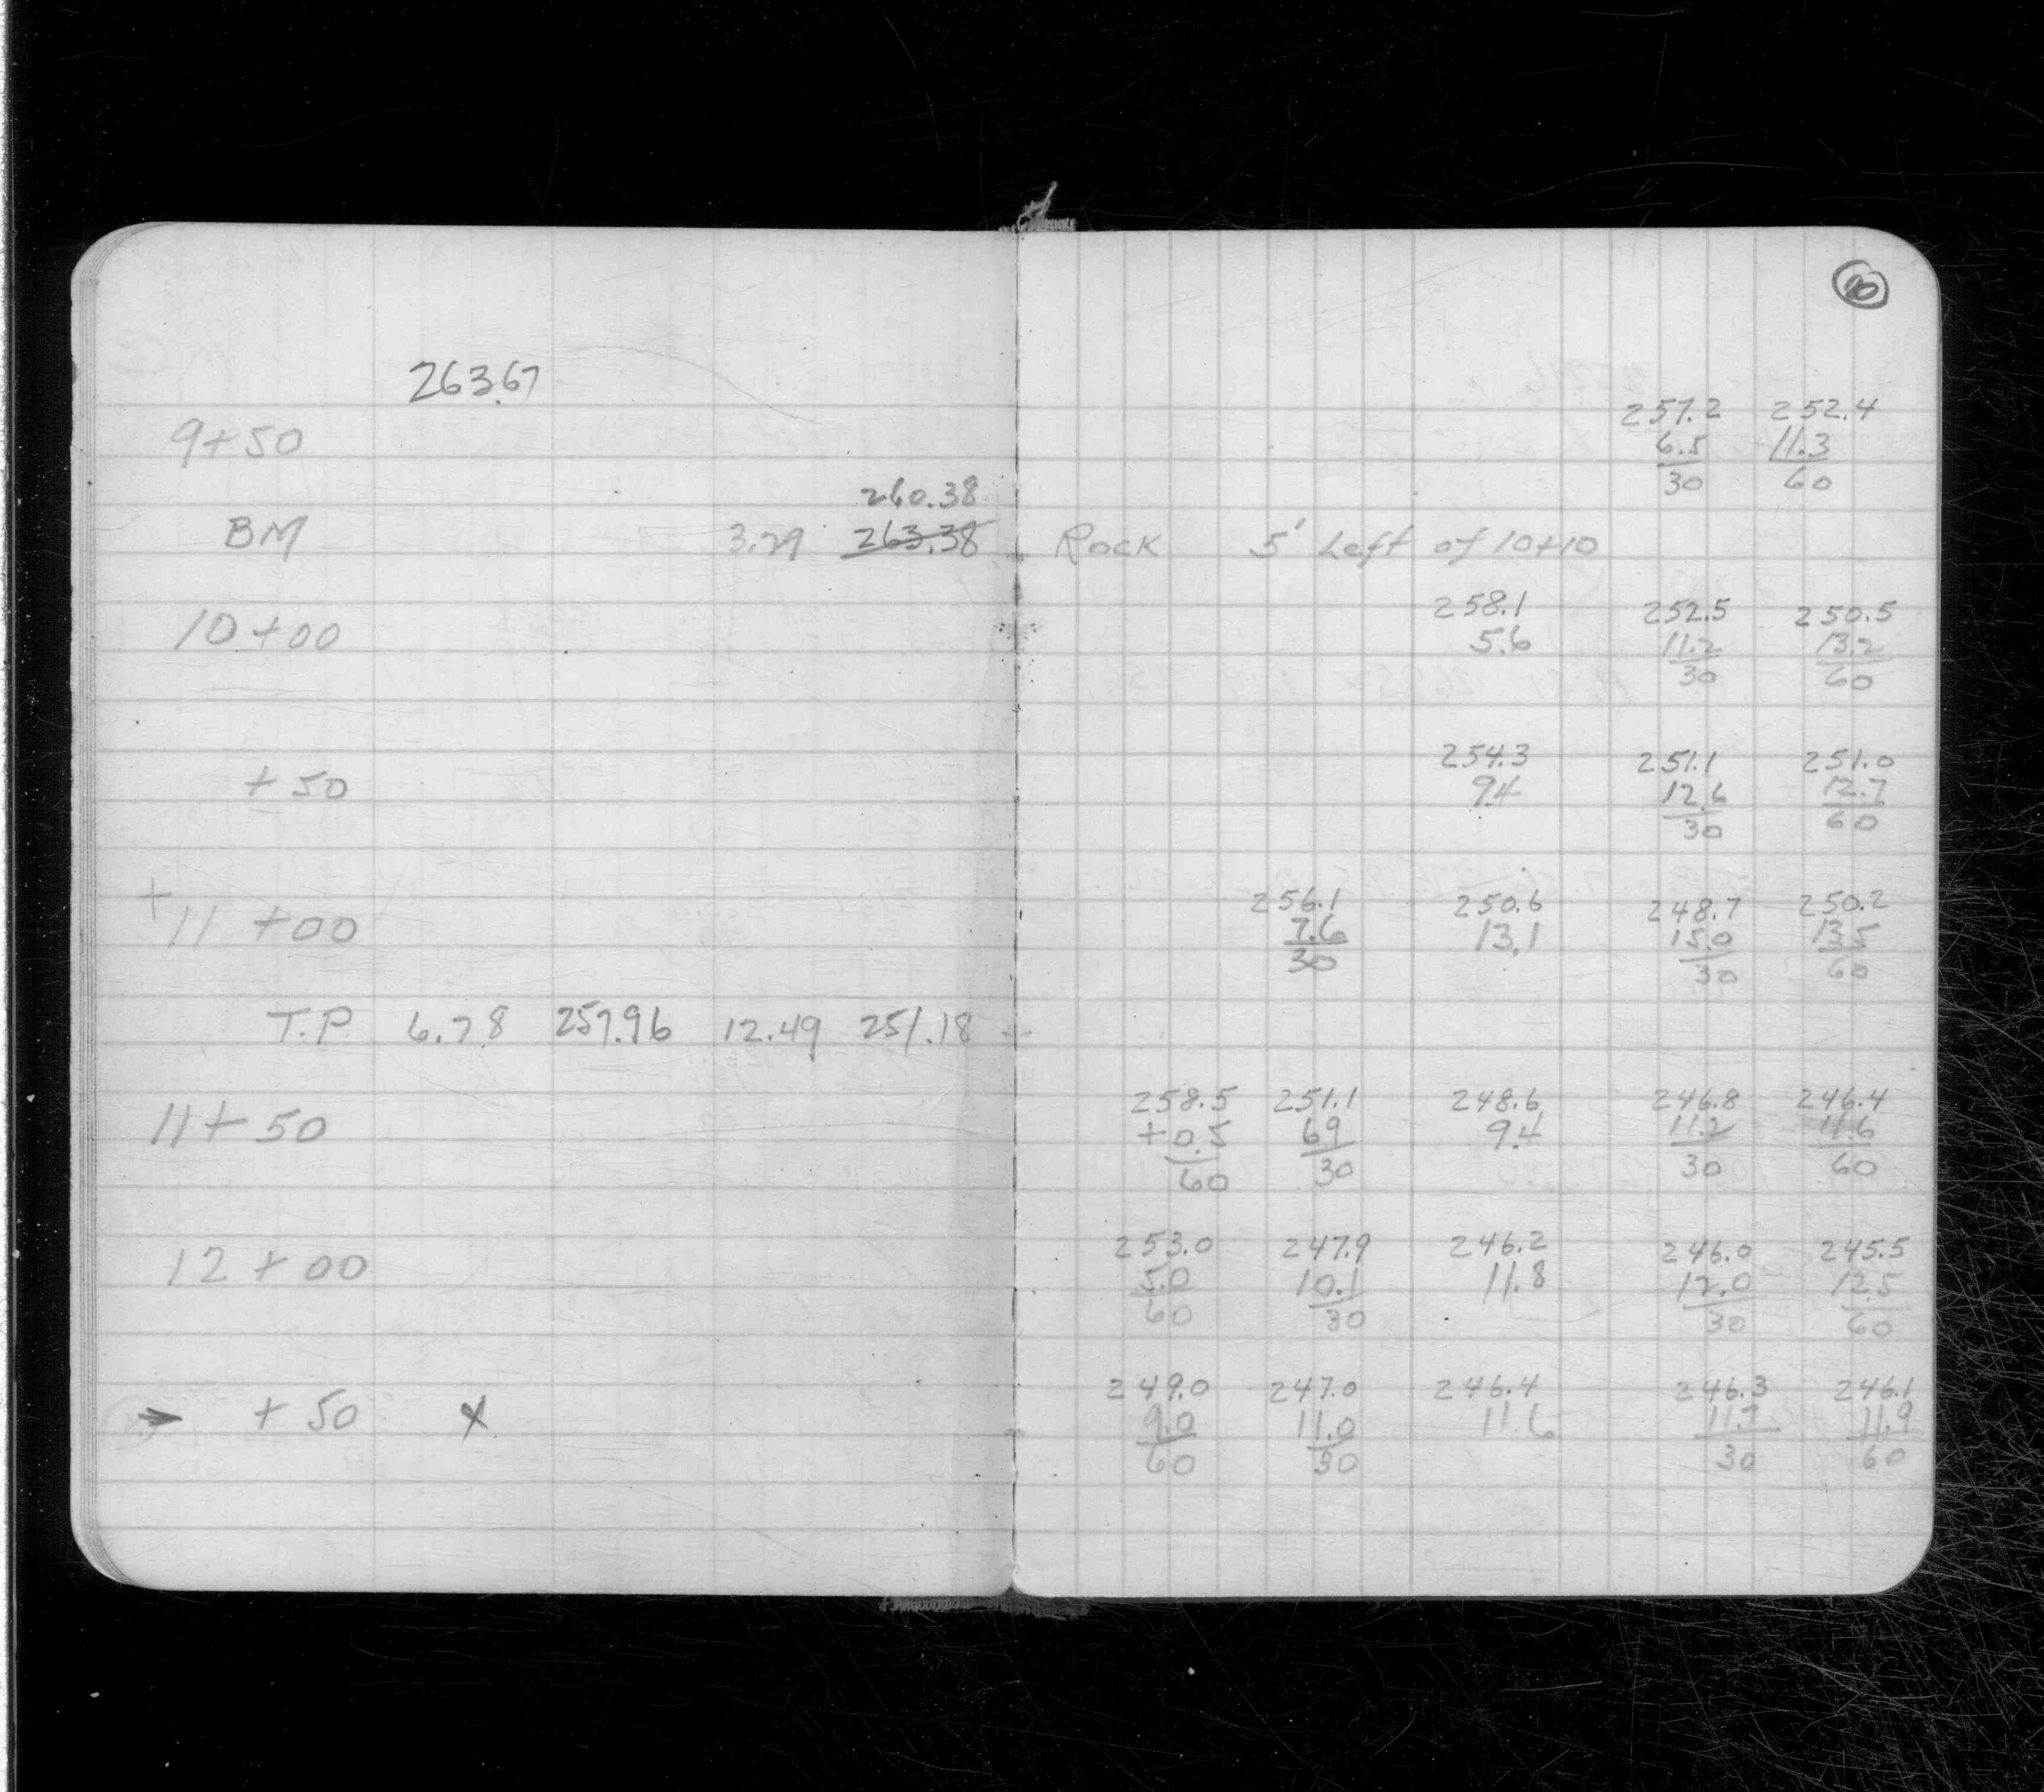 10
263.67
257.2 252.4
9+50 6.5 11.3
30 60
260.38
BM 3.29 263.38 Rock 5' Left of 10+10
258.1 252.5 250.5
10+00 5.6 11.2 13.2
30 60
254.3 251.1 251.0
+50 9.4 12.6 12.7
30 60
256.1 250.6 248.7 250.2
+11+00 7.6 13.1 15.0 13.5
30 30 60
T.P. 6.78 257.96 12.49 251.18
258.5 251.1 248.6 246.8 246.4
11+50 +0.5 6.9 9.4 11.2 11.6
60 30 30 60
253.0 247.9 246.2 246.0 245.5
12+00 5.0 10.1 11.8 12.0 12.5
60 30 30 60
249.0 247.0 246.4 246.3 246.1
→ +50 x 9.0 11.0 11.6 11.7 11.9
60 30 30 60